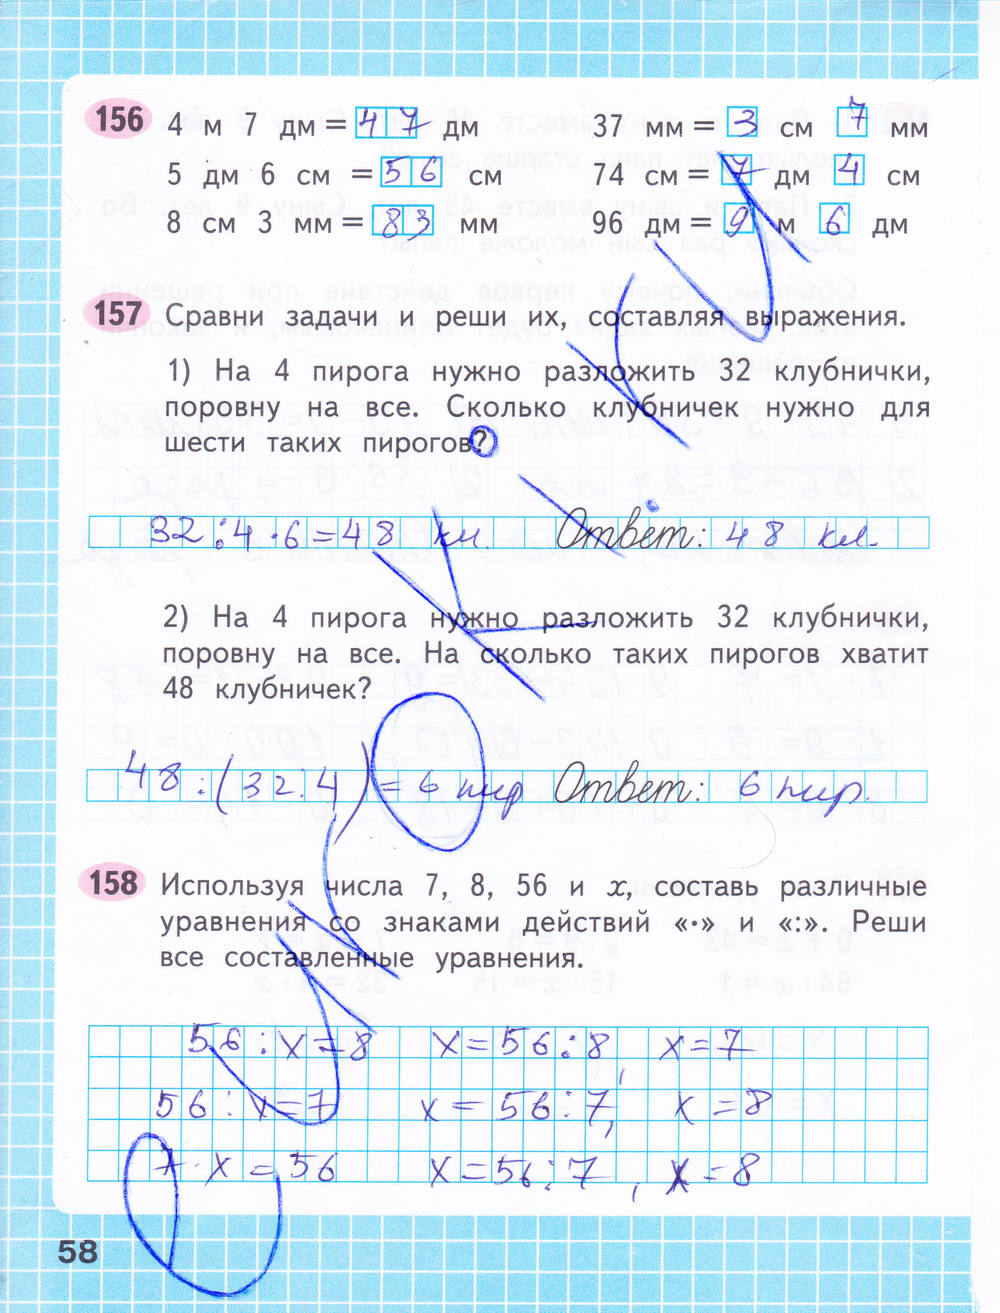 156 4 м 7 дм = 47 дм 37 мм = 3 см 7 мм
5 дм 6 см = 56 см 74 см = 7 дм 4 см
8 см 3 мм = 83 мм 96 дм = 9 м 6 дм
157 Сравни задачи и реши их, составляя выражения.
1) На 4 пирога нужно разложить 32 клубнички,
поровну на все. Сколько клубничек нужно для
шести таких пирогов?
32:4·6=48 кл. Ответ: 48 кл.
2) На 4 пирога нужно разложить 32 клубнички,
поровну на все. На сколько таких пирогов хватит
48 клубничек?
48:(32:4)=6 пир Ответ: 6 пир.
158 Используя числа 7, 8, 56 и x, составь различные
уравнения со знаками действий «·» и «:». Реши
все составленные уравнения.
56:x=8 x=56:8, x=7
56:x=7 x=56:7, x=8
7·x=56 x=56:7, x=8
58